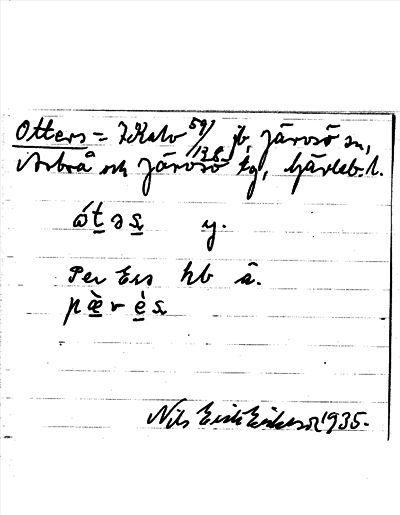 Otters = I Kalv 59/128 jb, Järvsö sn,
Arbrå och Järvsö tg, Gävleb. l.
y.
Per Ers hb å.
Nils Erik Eriksson 1935.